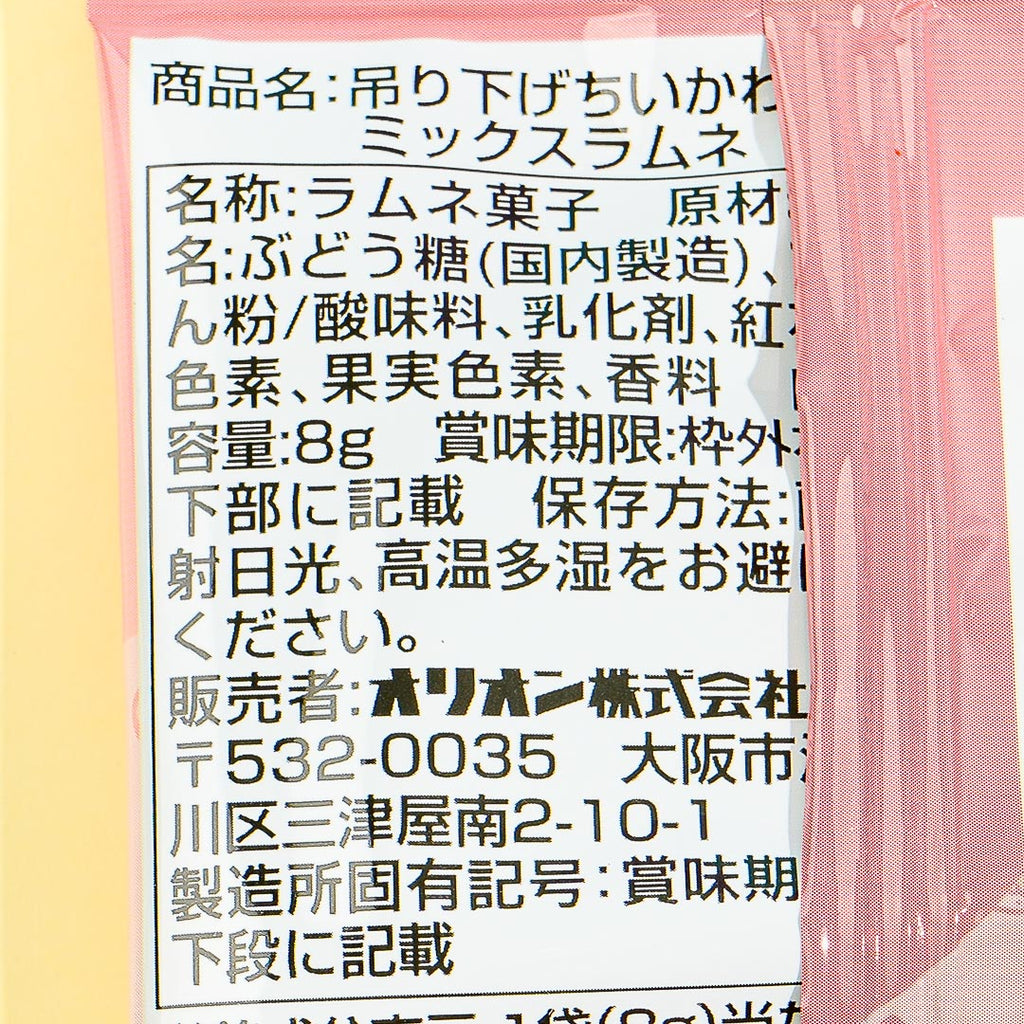 商品名:吊り下げちいかわ
ミックスラムネ
名称:ラムネ菓子　原材
名:ぶどう糖(国内製造)、
ん粉/酸味料、乳化剤、紅
色素、果実色素、香料
容量:8g　賞味期限:枠外
下部に記載　保存方法:
射日光、高温多湿をお避
ください。
販売者:オリオン株式会社
〒532-0035　大阪市
川区三津屋南2-10-1
製造所固有記号:賞味期
下段に記載
1袋(8g)当